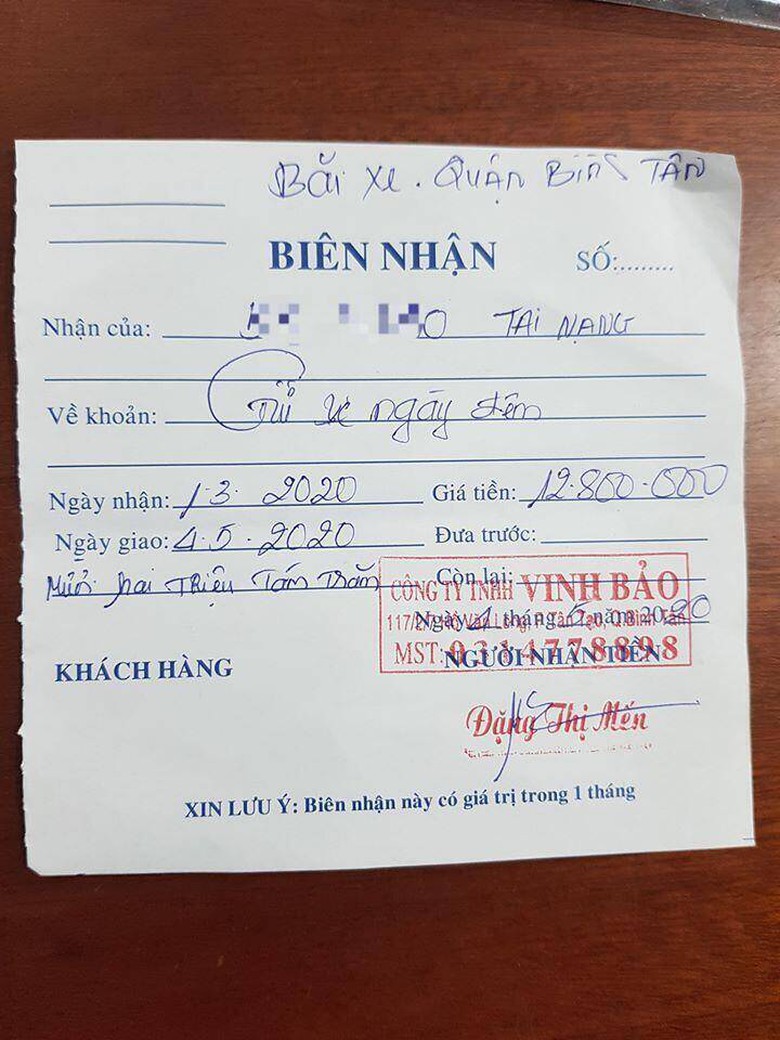 Bãi xe. QUẬN BÌNH TÂN
BIÊN NHẬN
SỐ:.........
Nhận của: TAI NẠNG
Về khoản: Gửi xe ngày đêm
Ngày nhận: 1.3. 2020 Giá tiền: 12.800.000
Ngày giao: 4.5.2020 Đưa trước:
Mười hai Triệu Tám Trăm Còn lại:
CÔNG TY TNHH VINH BẢO
Ngày 4 tháng 5 năm 2020
117/2/7 Hồ Văn Long, P. Tân Tạo, Q.Bình Tân
MST: 0314778898
KHÁCH HÀNG NGƯỜI NHẬN TIỀN
Đặng Thị Mến
XIN LƯU Ý: Biên nhận này có giá trị trong 1 tháng